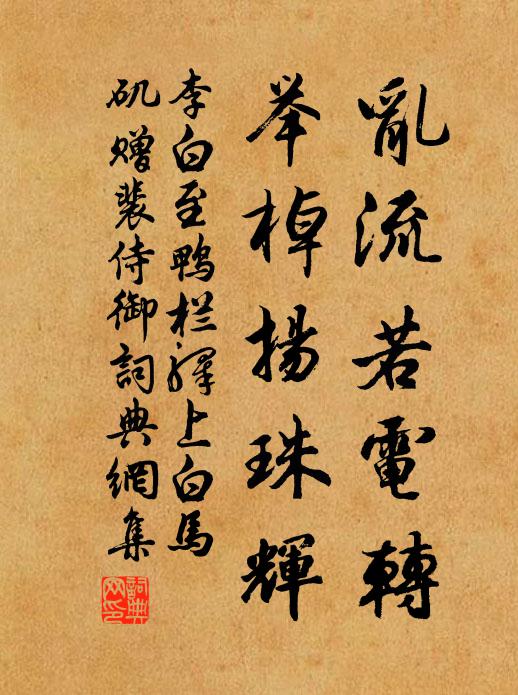 亂流若電轉
举棹揚珠輝
李白至鸭栏驛上白馬
矶赠裴侍御詞典網集
詞典网印